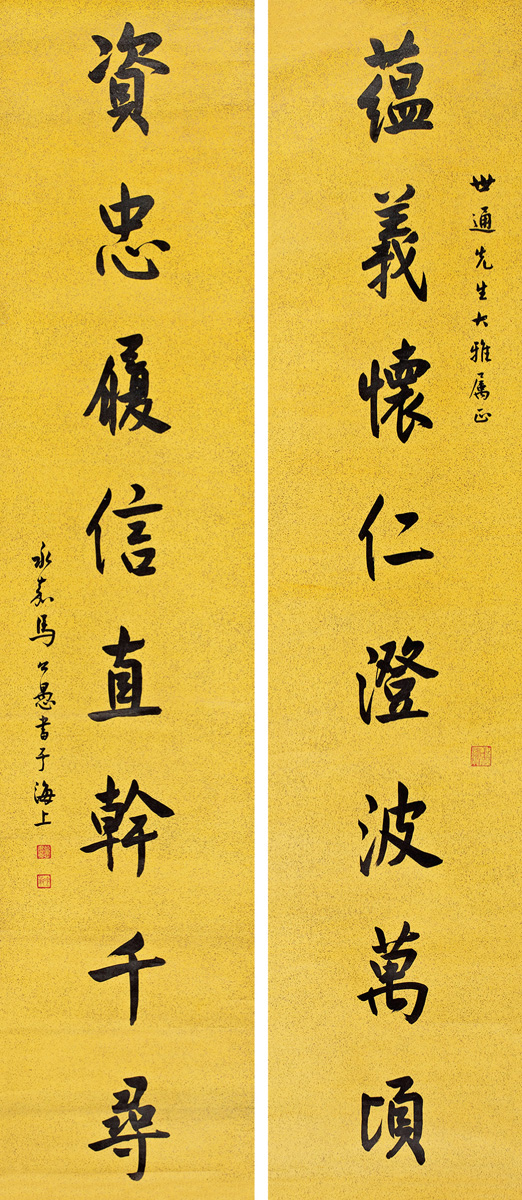 世通先生大雅属正
蕴義懷仁澄波萬頃
資忠履信直幹千尋
永嘉馬公愚書于海上